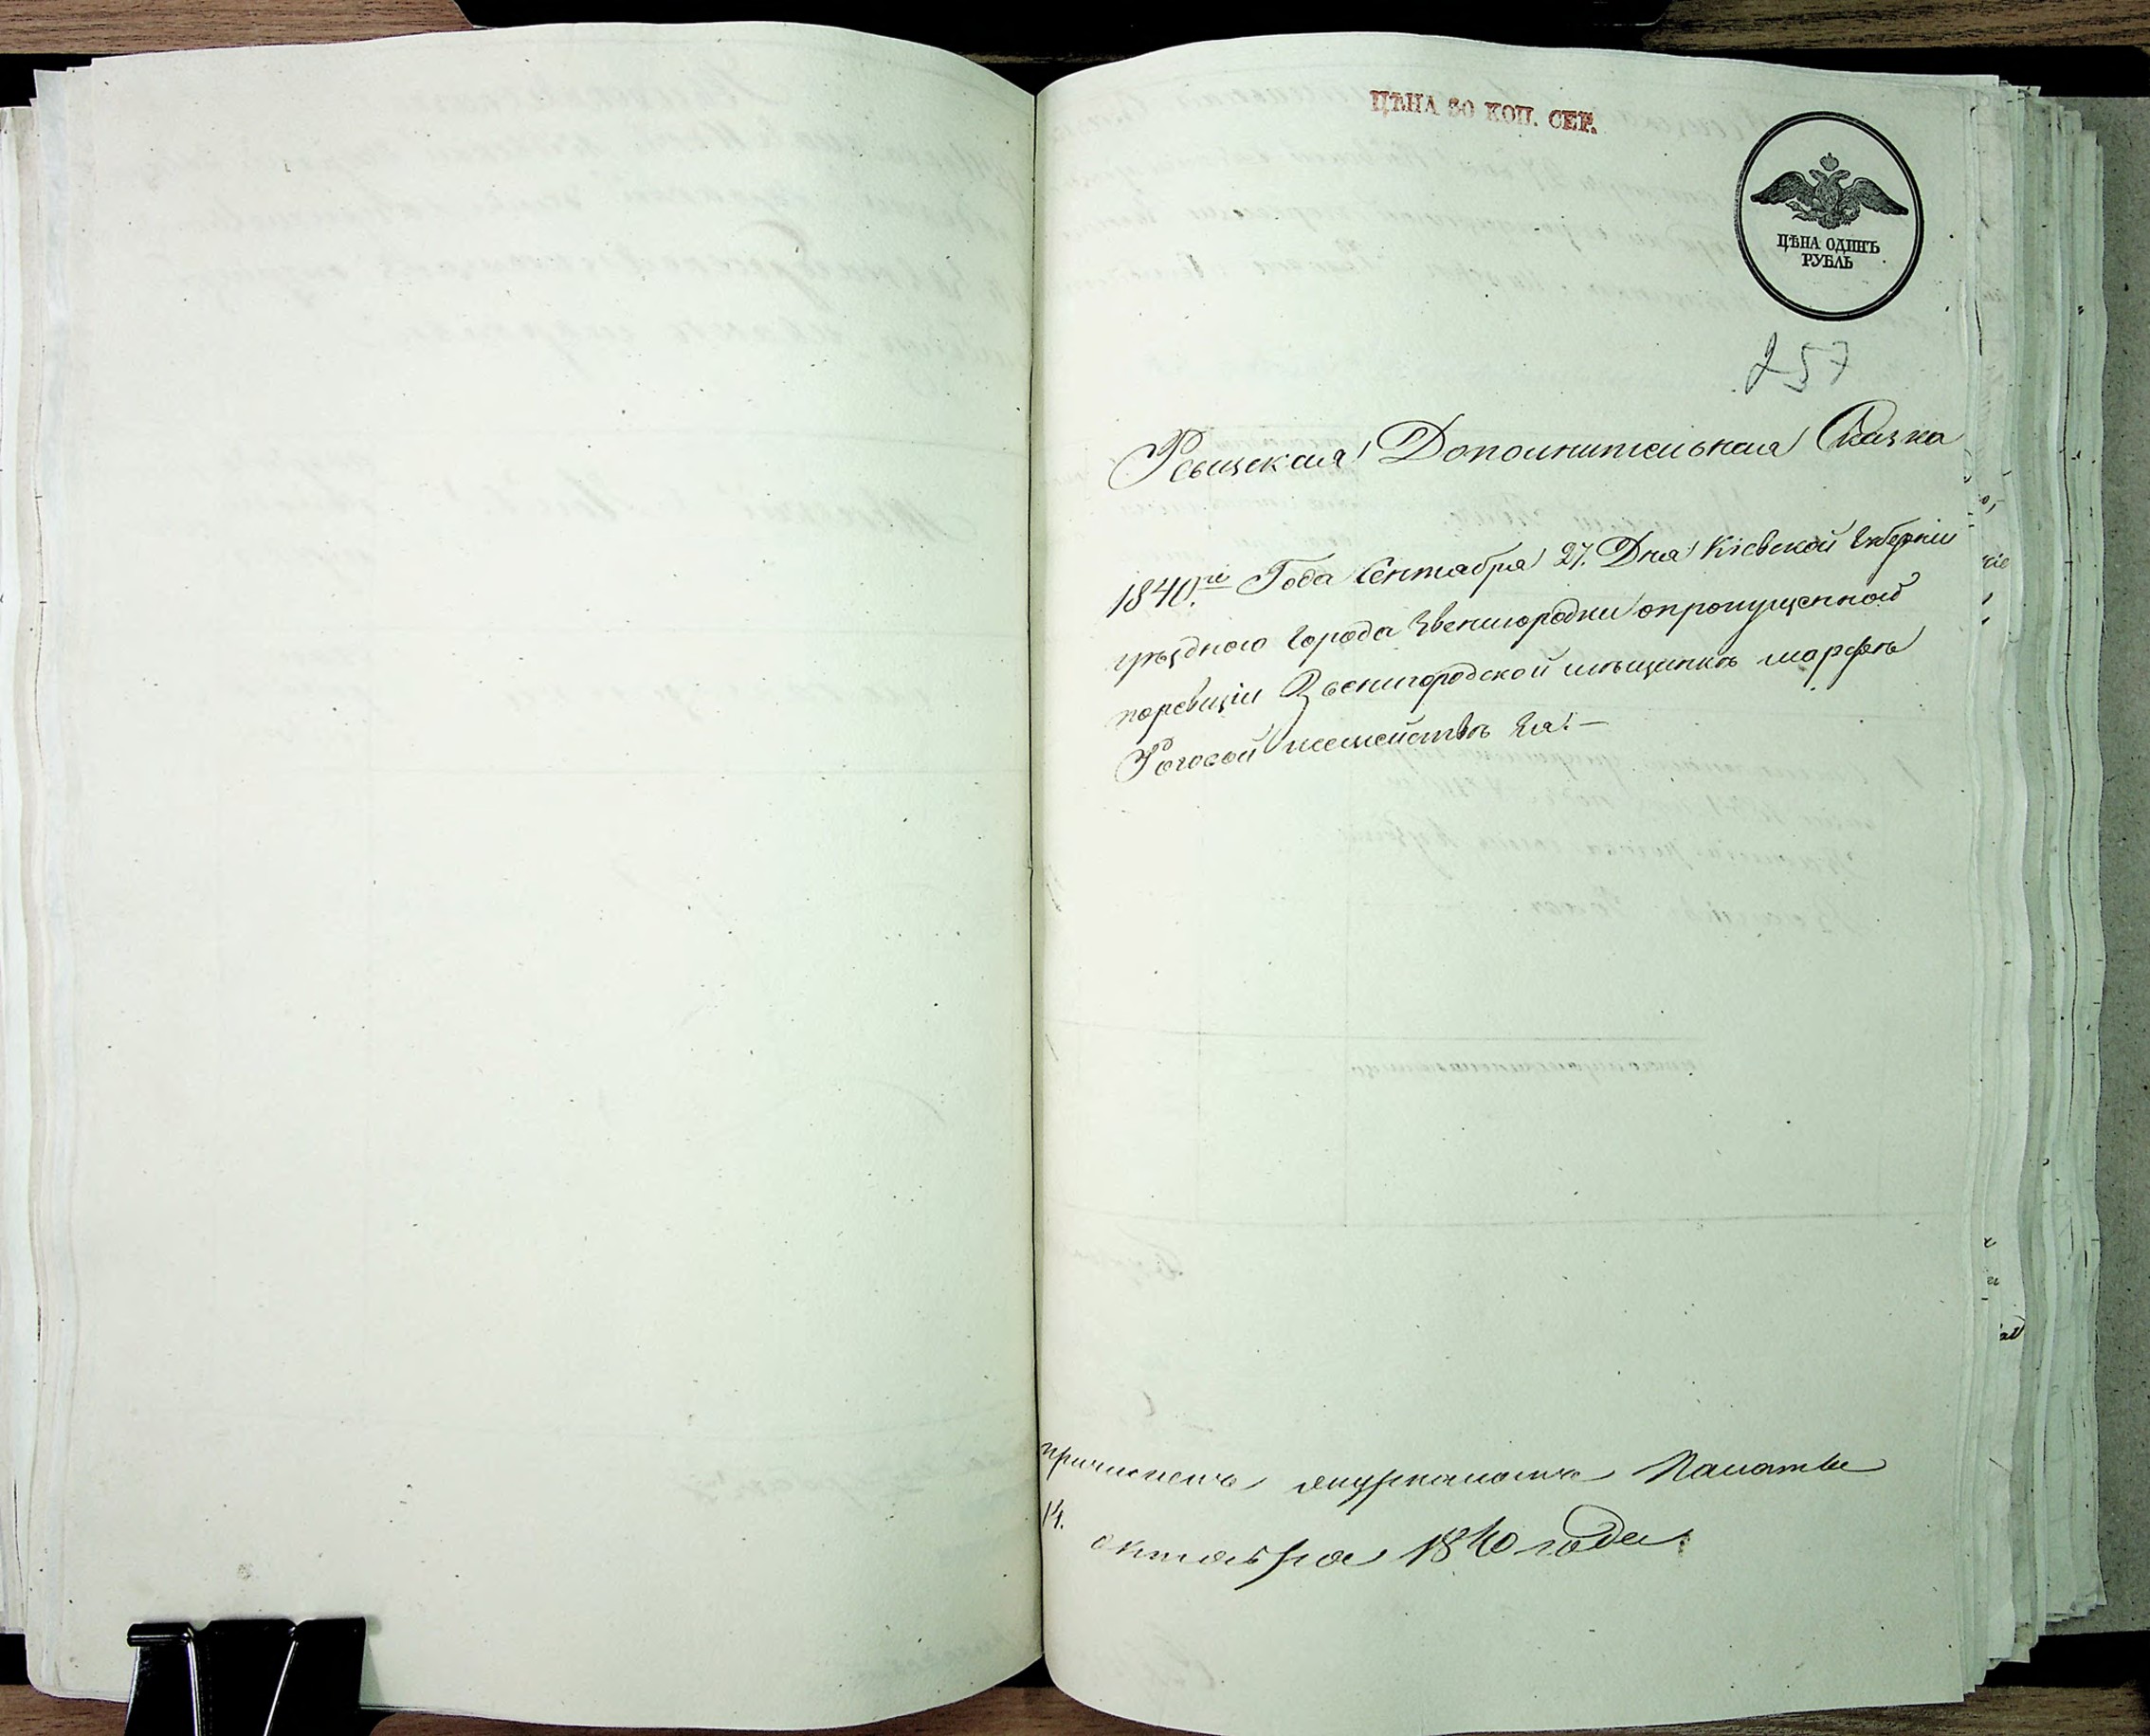 ЦѢНА 30 КОП. СЕР.
ЦѢНА ОДИНЪ
РУБЛЬ
257
Ревизская Дополнительная Сказка
1840го Года Сентабра 27. Дня Кіевской Губерніи
уѣзднаго Города Звенигородки опропущенной
поревизіи Звенигородской мѣщанкѣ марфѣ
Роговой исемействѣ Ея:—
Палатѣ
14.
октабра 1840 года